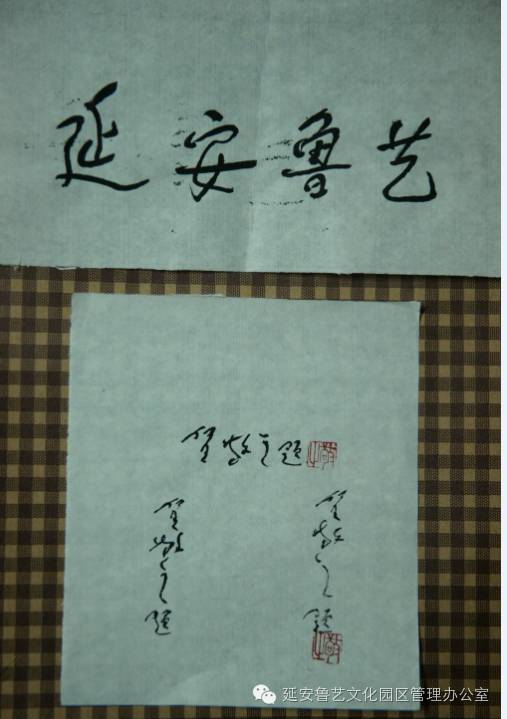 延安鲁艺
贺敬之题
贺敬之题
贺敬之题
延安鲁艺文化园区管理办公室